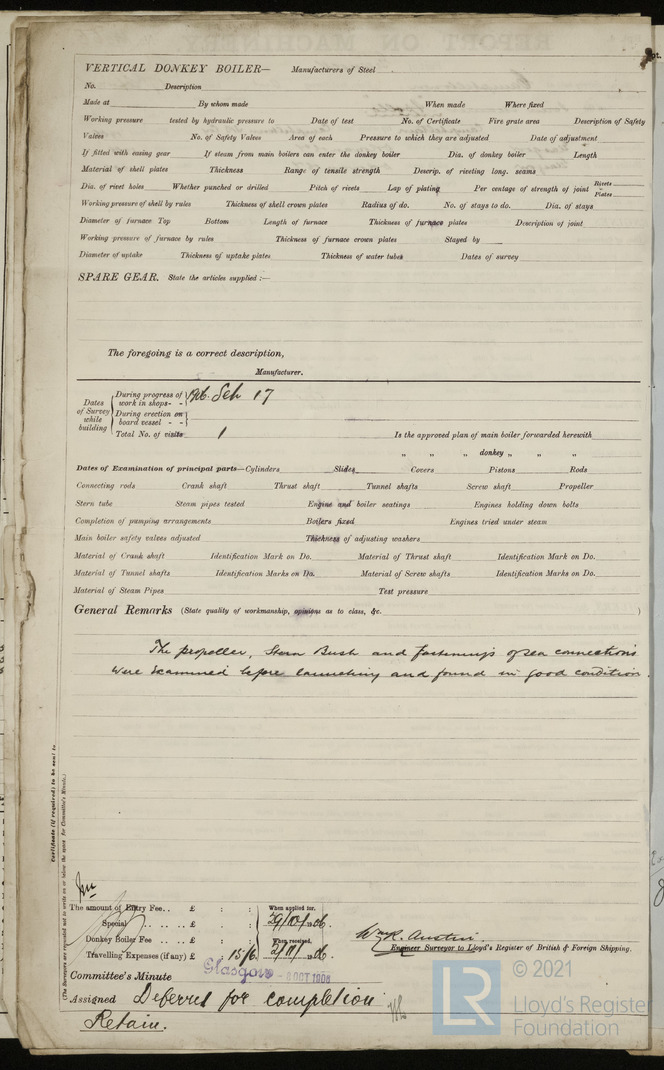 VERTICAL DONKEY BOILER— Manufacturers of Steel
No. Description
Made at By whom made When made Where fixed
Working pressure tested by hydraulic pressure to Date of test No. of Certificate Fire grate area Description of Safety
Valves No. of Safety Valves Area of each Pressure to which they are adjusted Date of adjustment
If fitted with easing gear If steam from main boilers can enter the donkey boiler Dia. of donkey boiler Length
Material of shell plates Thickness Range of tensile strength Descrip. of riveting long. seams
Dia. of rivet holes Whether punched or drilled Pitch of rivets Lap of plating Per centage of strength of joint Rivets Plates
Working pressure of shell by rules Thickness of shell crown plates Radius of do. No. of stays to do. Dia. of stays
Diameter of furnace Top Bottom Length of furnace Thickness of furnace plates Description of joint
Working pressure of furnace by rules Thickness of furnace crown plates Stayed by
Diameter of uptake Thickness of uptake plates Thickness of water tubes Dates of survey
SPARE GEAR. State the articles supplied :—
The foregoing is a correct description,
Manufacturer.
Dates of Survey while building
During progress of work in shops - - 1906. Feb 17
During erection on board vessel - -
Total No. of visits 1 Is the approved plan of main boiler forwarded herewith
" " " donkey " " "
Dates of Examination of principal parts—Cylinders Slides Covers Pistons Rods
Connecting rods Crank shaft Thrust shaft Tunnel shafts Screw shaft Propeller
Stern tube Steam pipes tested Engine and boiler seatings Engines holding down bolts
Completion of pumping arrangements Boilers fixed Engines tried under steam
Main boiler safety valves adjusted Thickness of adjusting washers
Material of Crank shaft Identification Mark on Do. Material of Thrust shaft Identification Mark on Do.
Material of Tunnel shafts Identification Marks on Do. Material of Screw shafts Identification Marks on Do.
Material of Steam Pipes Test pressure
General Remarks (State quality of workmanship, opinions as to class, &c. )
The propeller, Stern Bush and fastenings of sea connections
were examined before launching and found in good condition.
Certificate (if required) to be sent to
(The Surveyors are requested not to write on or below the space for Committee's Minute.)
The amount of Entry Fee .. £ : : When applied for,
Special .. .. .. £ : : 29/10/1906.
Donkey Boiler Fee .. .. £ : : When received,
Travelling Expenses (if any) £ : 15/6 2/11/1906
Wm R. Austin
Engineer Surveyor to Lloyd's Register of British & Foreign Shipping.
Committee's Minute Glasgow - 8 OCT 1906
Assigned Deferred for completion
Retain.
© 2021
Lloyd's Register
Foundation
LR